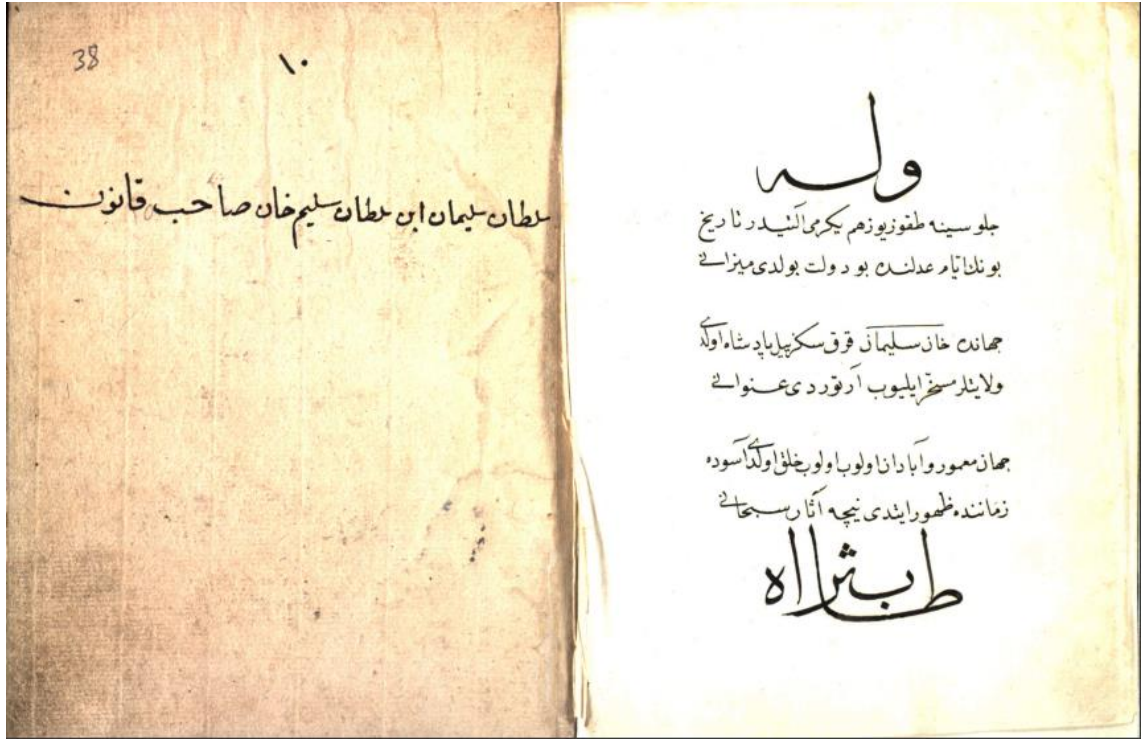 38
١٠
سلطان سليمان ابن سلطان سليم خان صاحب قانون
وله
جلوسينه طقوز يوز هم يكرمى آلتيدر تاريخ
بونك ايام عدلنده بو دولت بولدى ميزانى
جهانده خان سليمانى قرق سكز ييل پادشاه اولدى
ولايتلر مسخر ايليوب آرتوردى عنوانى
جهان معمور و آبادان اولوب اولوب خلق اولدى آسوده
زماننده ظهور ايتدى نيچه آثار سبحانى
طاب ثراه